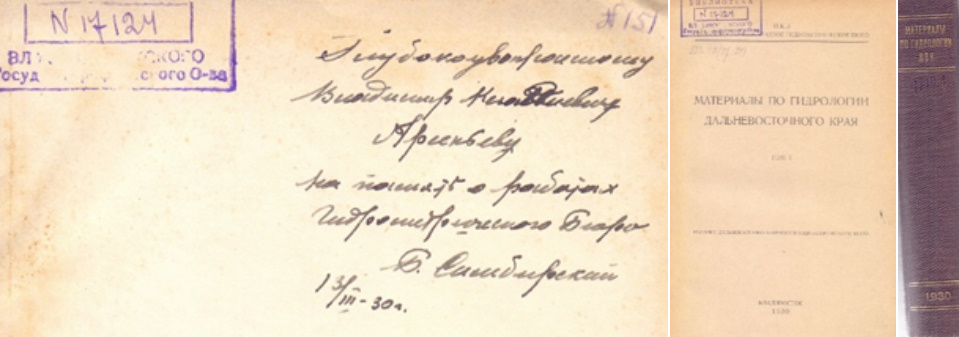 N 17124
№ 151
Глубокоуважаемому
Владимиру Клавдиевичу
Арсеньеву
на память о работах
Гидрометрического Бюро
Б. Симбирский
13/III - 30 г.
N 17124
МАТЕРИАЛЫ ПО ГИДРОЛОГИИ
ДАЛЬНЕВОСТОЧНОГО КРАЯ
ТОМ I
ВЛАДИВОСТОК
1930
МАТЕРИАЛЫ
ПО ГИДРОЛОГИИ
1930